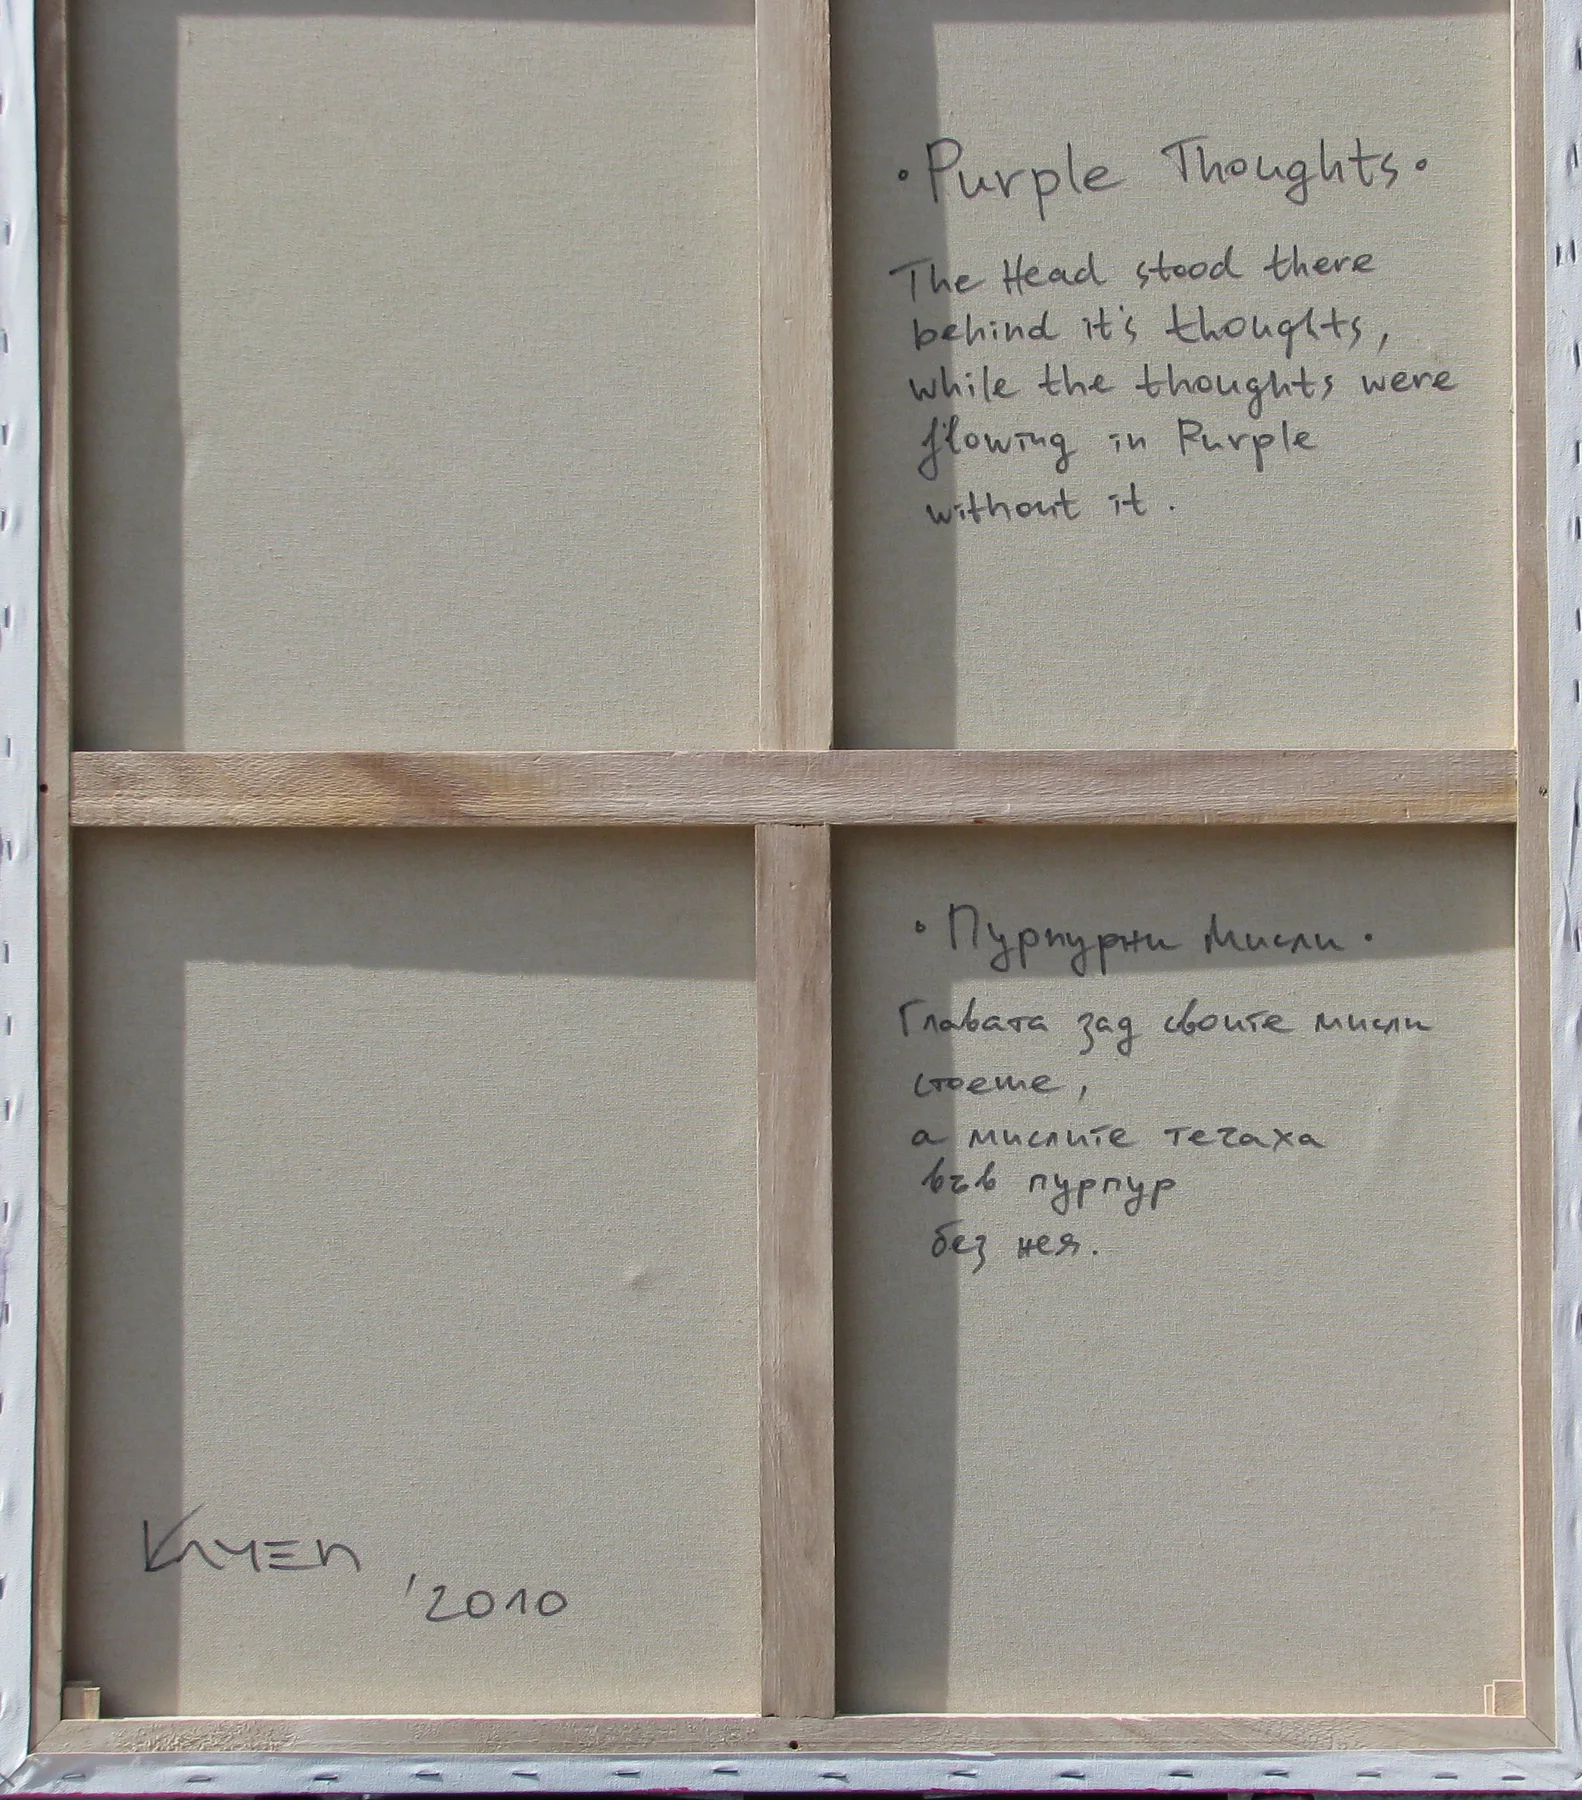 • Purple Thoughts •
The Head stood there
behind it's thoughts,
while the thoughts were
flowing in Purple
without it.
• Пурпурни Мисли •
Главата зад своите мисли
стоеше,
а мислите течаха
във пурпур
без нея.
'2010